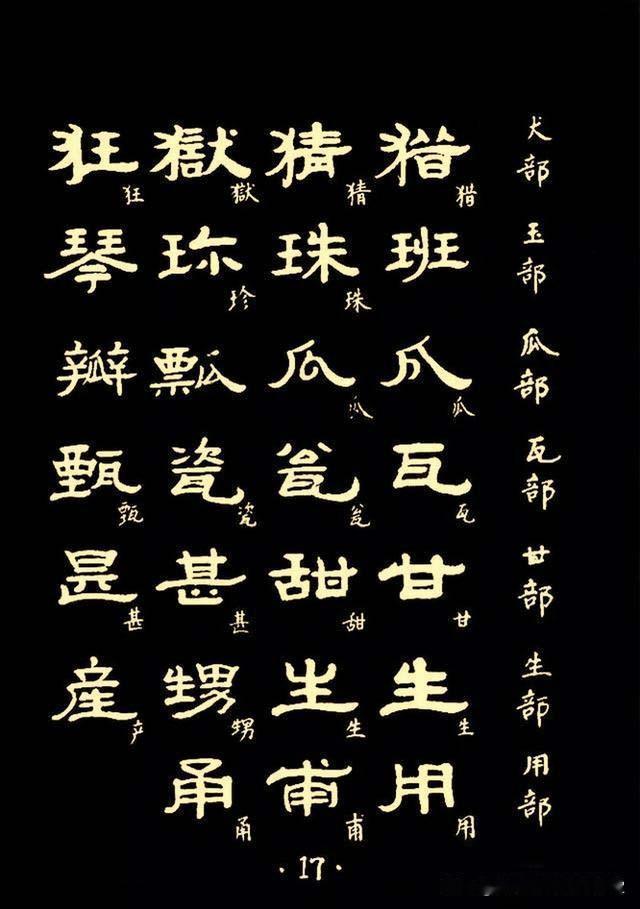 犬部 猎猎 猜猜 獄獄 狂狂
玉部 班 珠珠 珍珍 琴
瓜部 瓜瓜 瓜瓜 瓢 瓣
瓦部 瓦瓦 瓮瓮 瓷瓷 甄甄
甘部 甘甘 甜甜 甚甚 甚甚
生部 生生 生生 甥甥 産产
用部 用用 甫甫 甬甬
·17·